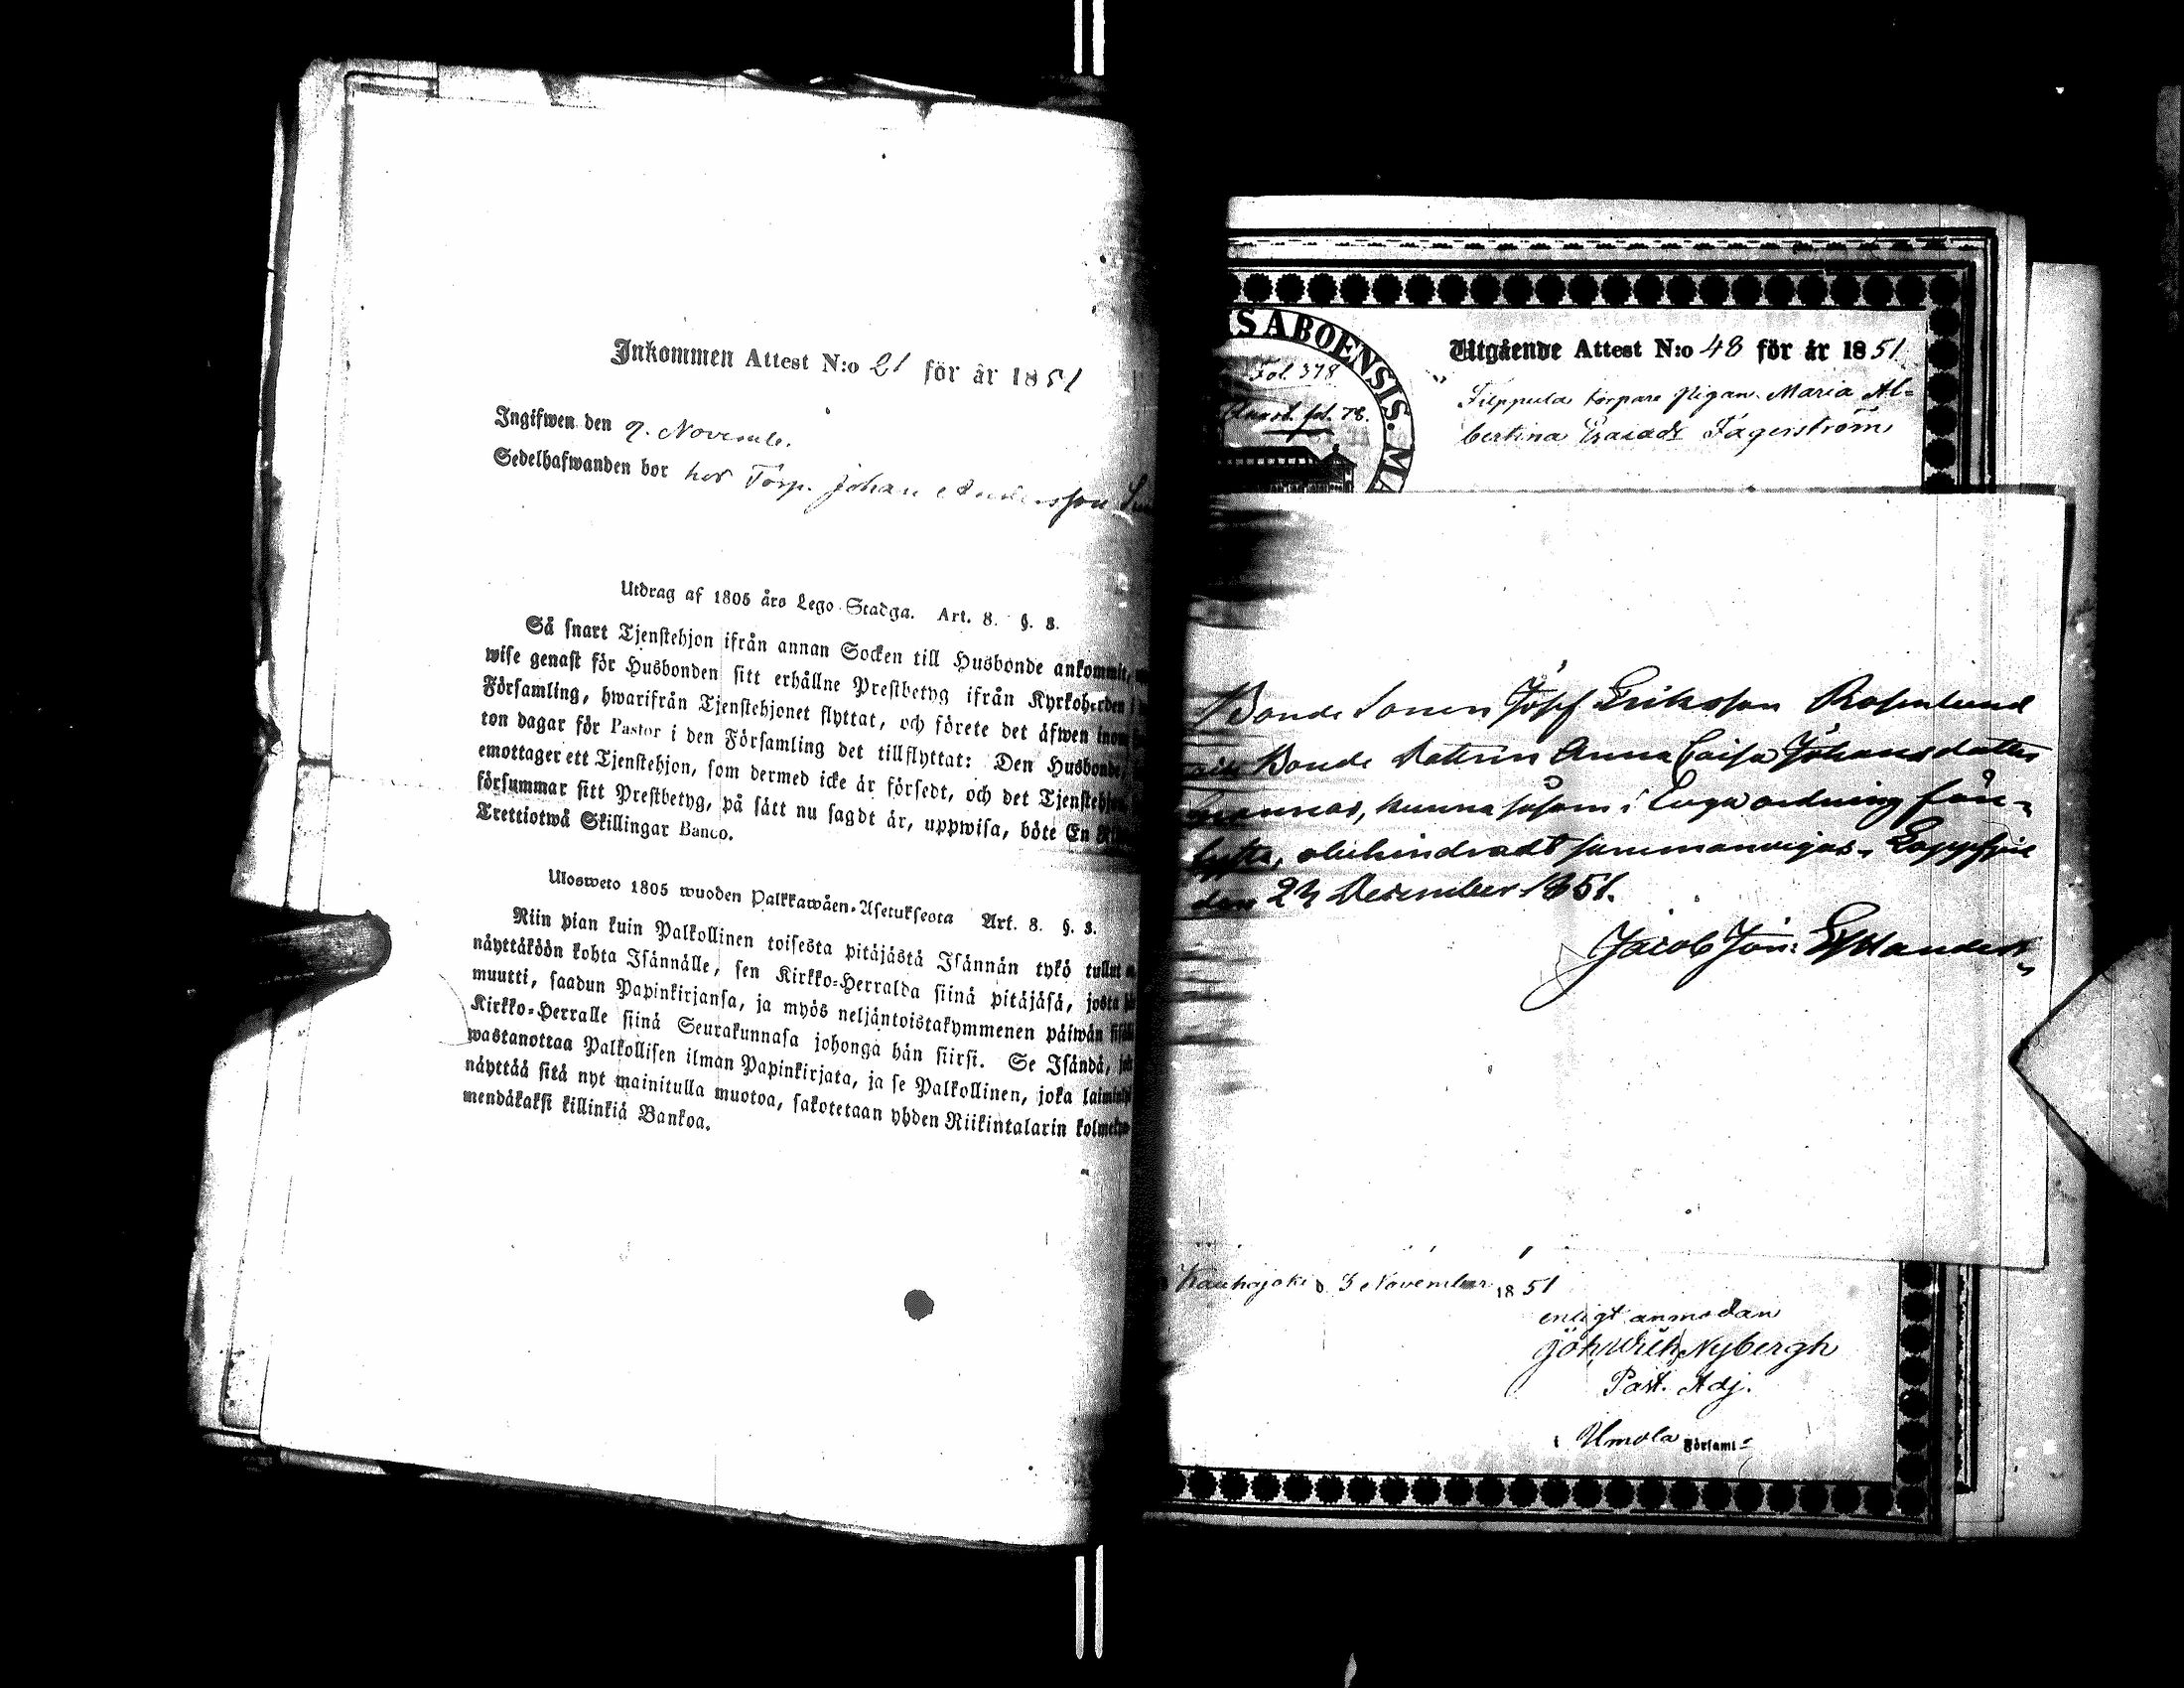 Inkommen Attest N:o 21 för år 1851
Ingifwen den 9. Novemb.
Sedelhafwanden bor hos Torp. Johan Andersson
Utdrag af 1805 års Lego-Stadga. Art. 8. §. 3.
Så snart Tjenstehjon ifrån annan Socken till Husbonde ankommit,
wise genast för Husbonden sitt erhållne Prestbetyg ifrån Kyrkoherden i
Församling, hwarifrån Tjenstehjonet flyttat, och förete det äfwen inom
ton dagar för Pastor i den Församling det tillflyttat: Den Husbonde,
emottager ett Tjenstehjon, som dermed icke är försedt, och det Tjenstehjon,
försummar sitt Prestbetyg, på sätt nu sagdt är, uppwisa, böte En
Trettiotwå Skillingar Banco.
Ulosweto 1805 wuoden Palkkawäen-Asetuksesta Art. 8. §. 3.
Niin pian kuin Palkollinen toisesta pitäjästä Isännän tykö tullut
näyttäköön kohta Isännälle, sen Kirkko-Herralda siinä pitäjäsä, josta
muutti, saadun Papinkirjansa, ja myös neljäntoistakymmenen päiwän
Kirkko-Herralle siinä Seurakunnasa johonga hän siirsi. Se Isändä,
wastanottaa Palkollisen ilman Papinkirjata, ja se Palkollinen, joka
näyttää sitä nyt mainitulla muotoa, sakotetaan yhden Riikintalarin
mendäkaksi killinkiä Bankoa.
IS ABOENSIS. MA
Fol. 378
fol. 78.
Utgående Attest N:o 48 för år 1851
Filppula torpare pigan Maria Al-
bertina Esaiadr Fagerström
Bonde Sonen Josef Eriksson Rosenlund
och Bonde Dottren Anna Caisa Johansdotter
kunna såsom i Laga ordning före-
lysta, obehindradt sammanvigas. Lappfjerd
den 23 December 1851.
Jacob Joh:
Kauhajoki d. 5 November 1851
enligt anmodan
Joh. Wilh. Nybergh
Past. Adj.
i Ilmola Församl: